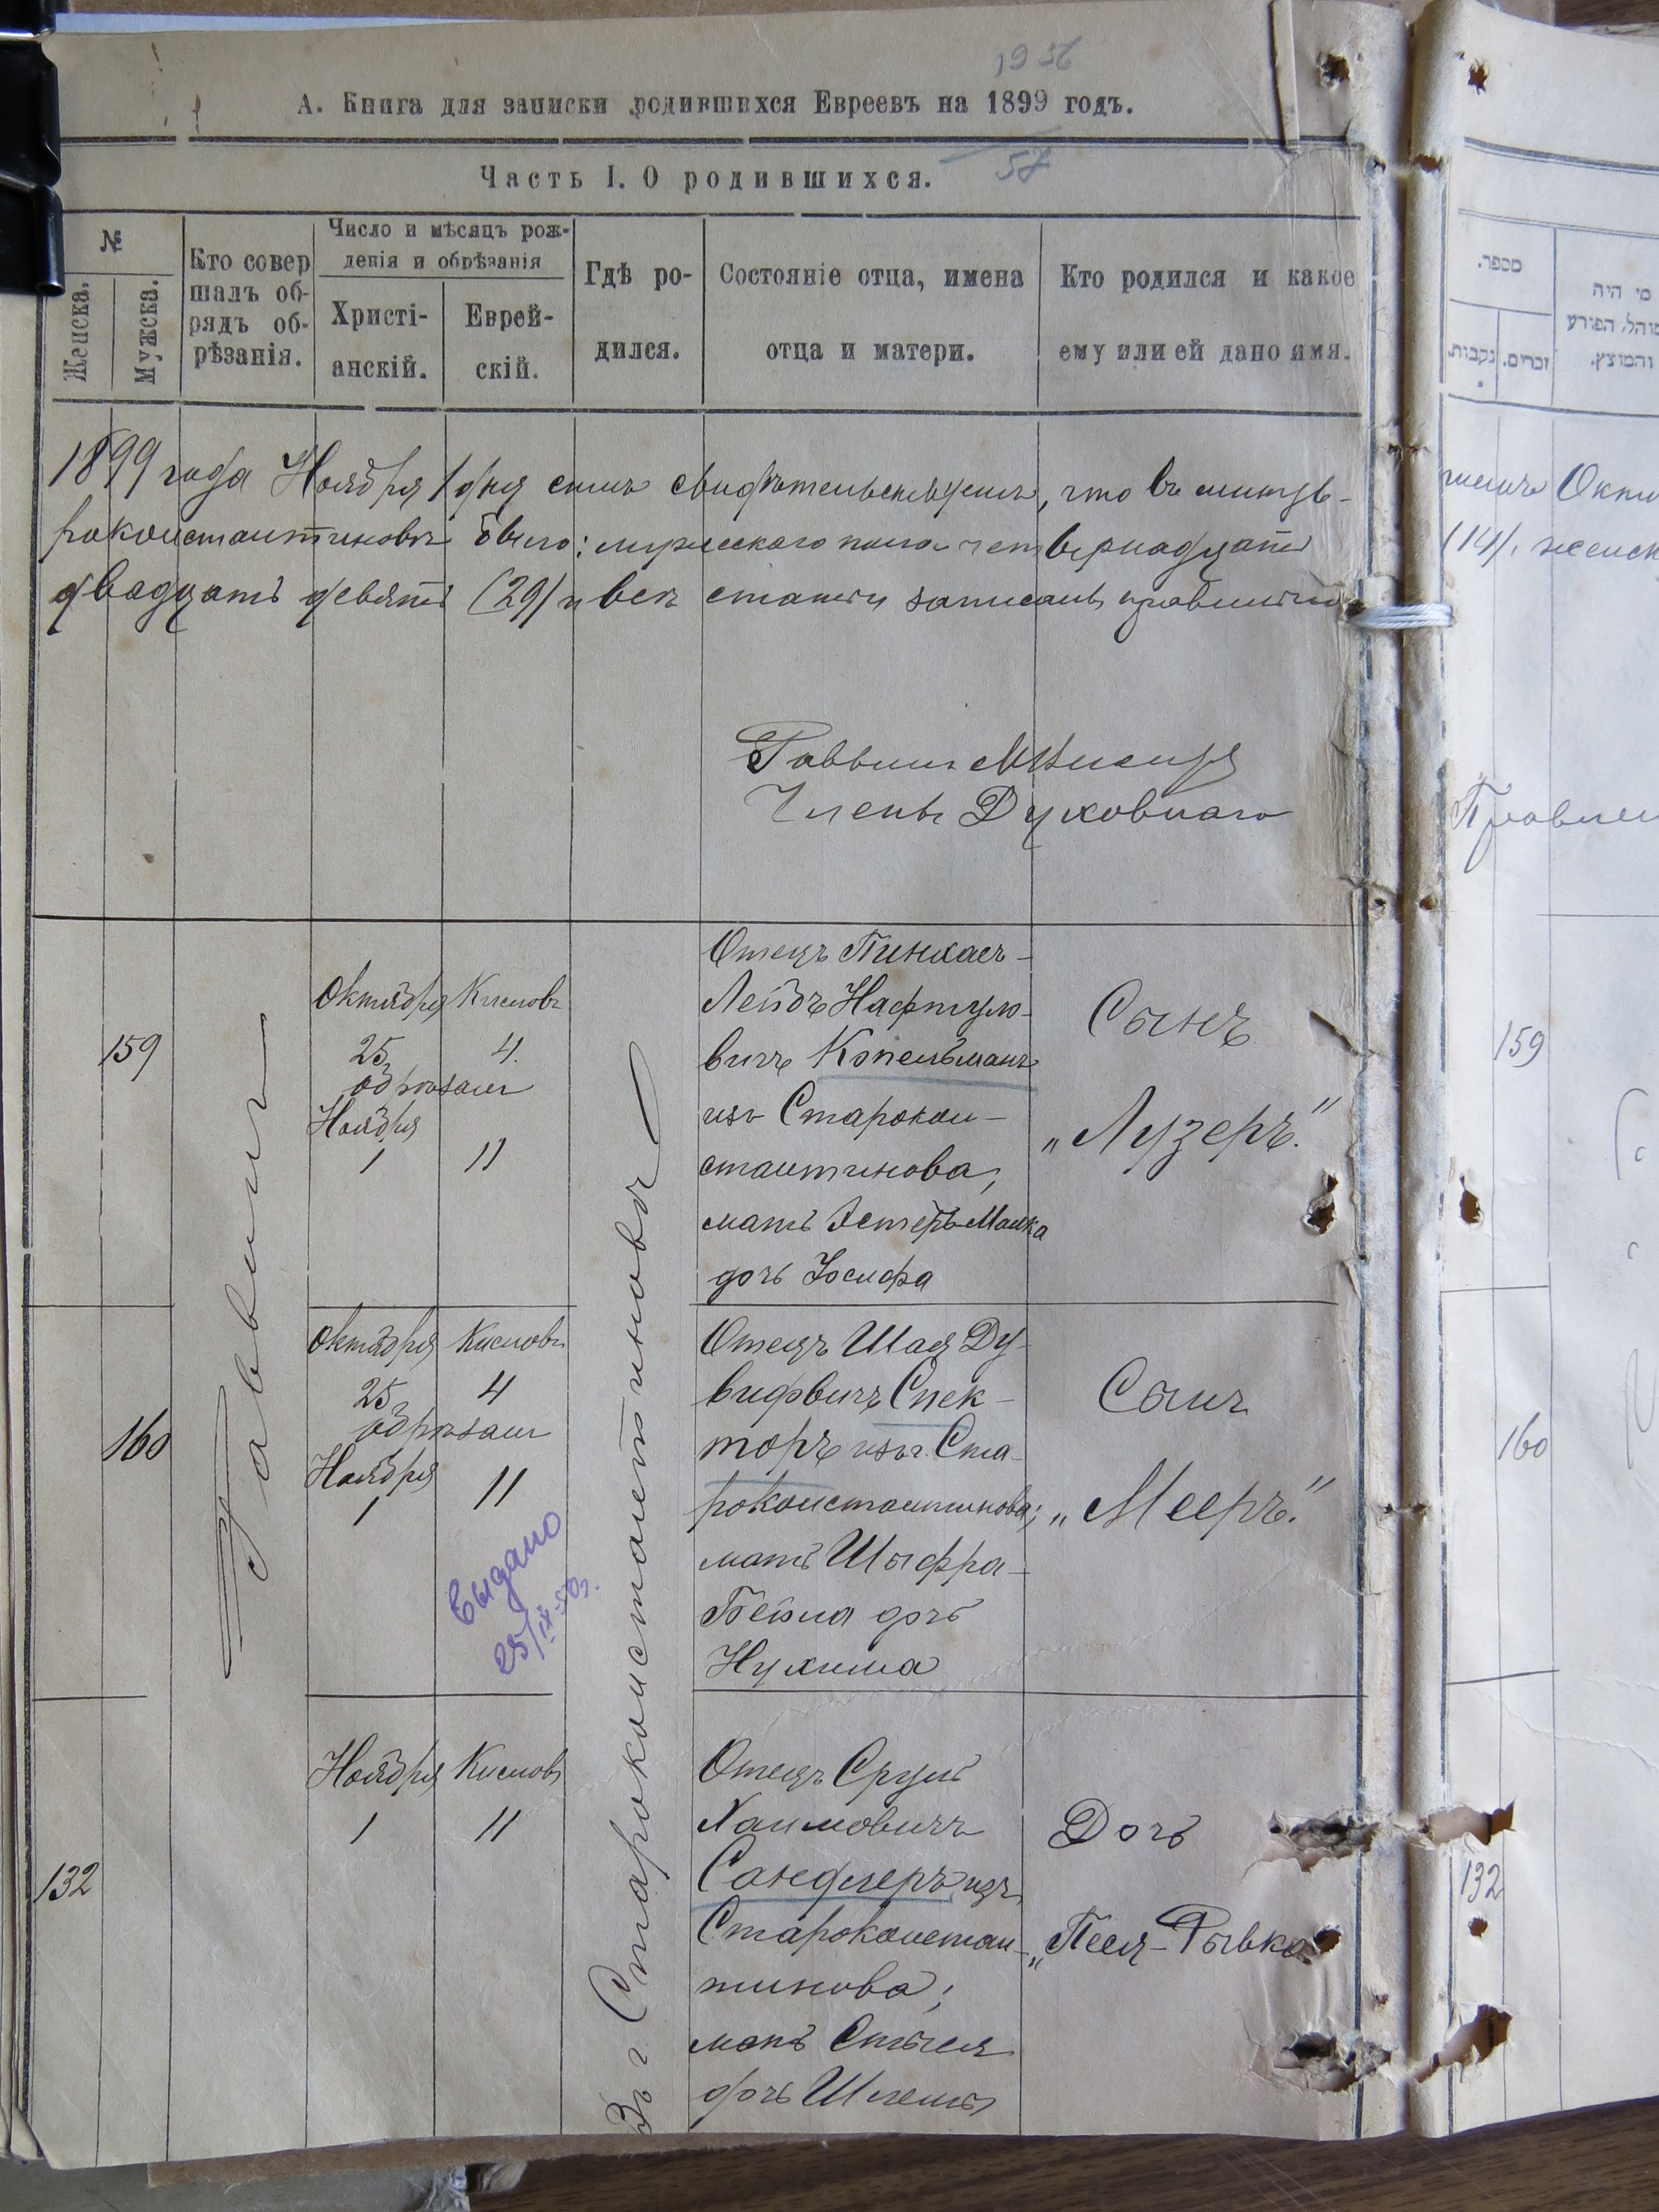 1956
А. Книга для записки родившихся Евреевъ на 1899 годъ.
57
Часть I. О родившихся.
№
Женска.
Мужска.
Кто совер
шалъ об-
рядъ об-
рѣзанія.
Число и мѣсяцъ рож-
денія и обрѣзанія
Христі-
анскій.
Еврей-
скій.
Гдѣ ро-
дился.
Состояніе отца, имена
отца и матери.
Кто родился и какое
ему или ей дано имя.
1899 года Ноября 1 дня симъ свидѣтельствуемъ, что въ
роконстантиновѣ было: мужескаго пола четырнадцать
двадцать девять (29) и всѣ статьи записаны правильно
Раввинъ
Члены Духовнаго
Раввинъ
Въ г. Староконстантиновѣ
159
Октября Кисловъ
25 4.
обрѣзанъ
Ноября
1 11
Отецъ Пинхасъ-
Лейбъ Нафтуло-
вичъ Копельманъ
изъ Старокон-
стантинова,
мать Эстеръ-Малка
дочь Іосифа
Сынъ
„Лузеръ."
160
Октября Кисловъ
25 4
обрѣзанъ
Ноября
1 11
Выдано
25/IX-50г.
Отецъ Шая Ду-
видовичъ Спек-
торъ изъ г. Ста-
роконстантинова;
мать Шыфра-
Бейла дочь
Нухима
Сынъ
„Мееръ."
132
Ноября Кисловъ
1 11
Отецъ Сруль
Хаимовичъ
Сандлеръ изъ
Староконстан-
тинова;
мать
дочь
Дочь
„Песя-Рывка"
מספר.
נקבות.
זכרים.
מי היה
מוהל, הפורע
והמוצץ.
(14), женск
159
160
132